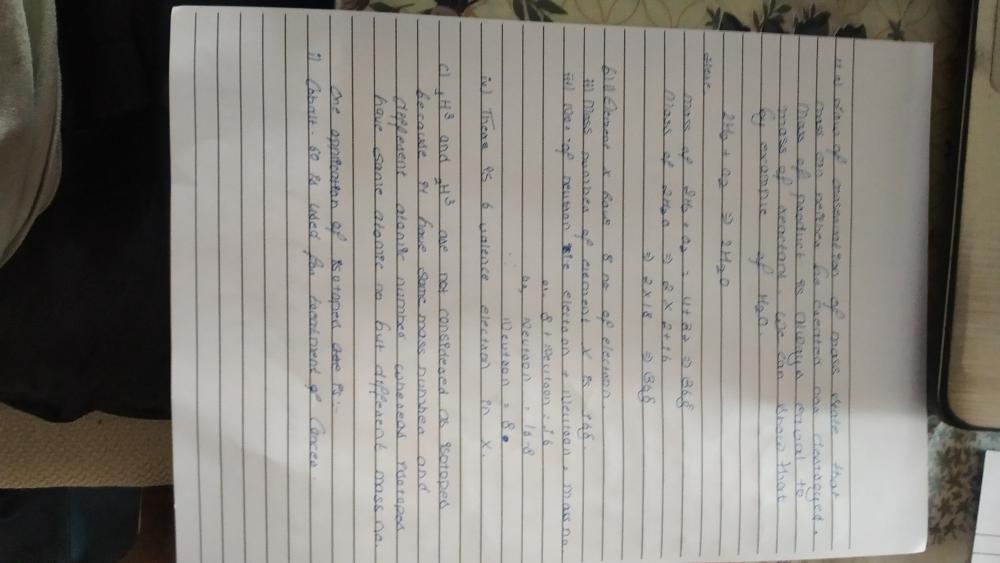 11 a) Law of conservation of mass state that
mass can neither be created nor destroyed.
Mass of product is always equal to
mass of reactant. We can show that
by example of H₂O.
2H₂ + O₂ ⇒ 2H₂O
mass of 2H₂ + O₂ = 4+32 ⇒ 36g
Mass of 2H₂O ⇒ 2 x 2+16
⇒ 2 x 18 ⇒ 36g
b) i) Element X have 8 no of electron.
ii) Mass number of element X is 16g.
iii) no. of neutron electron + Neutron = mass no
or, 8 + Neutron = 16
or, Neutron = 16-8
∴ Neutron = 8.
iv) There is 6 valence electron in X.
c) ₁H³ and ₂H³ are not considered as isotopes
because it have same mass number and
different atomic number whereas isotopes
have same atomic no but different mass no.
One application of isotopes is:-
i) Cobalt-60 is used for treatment of Cancer.